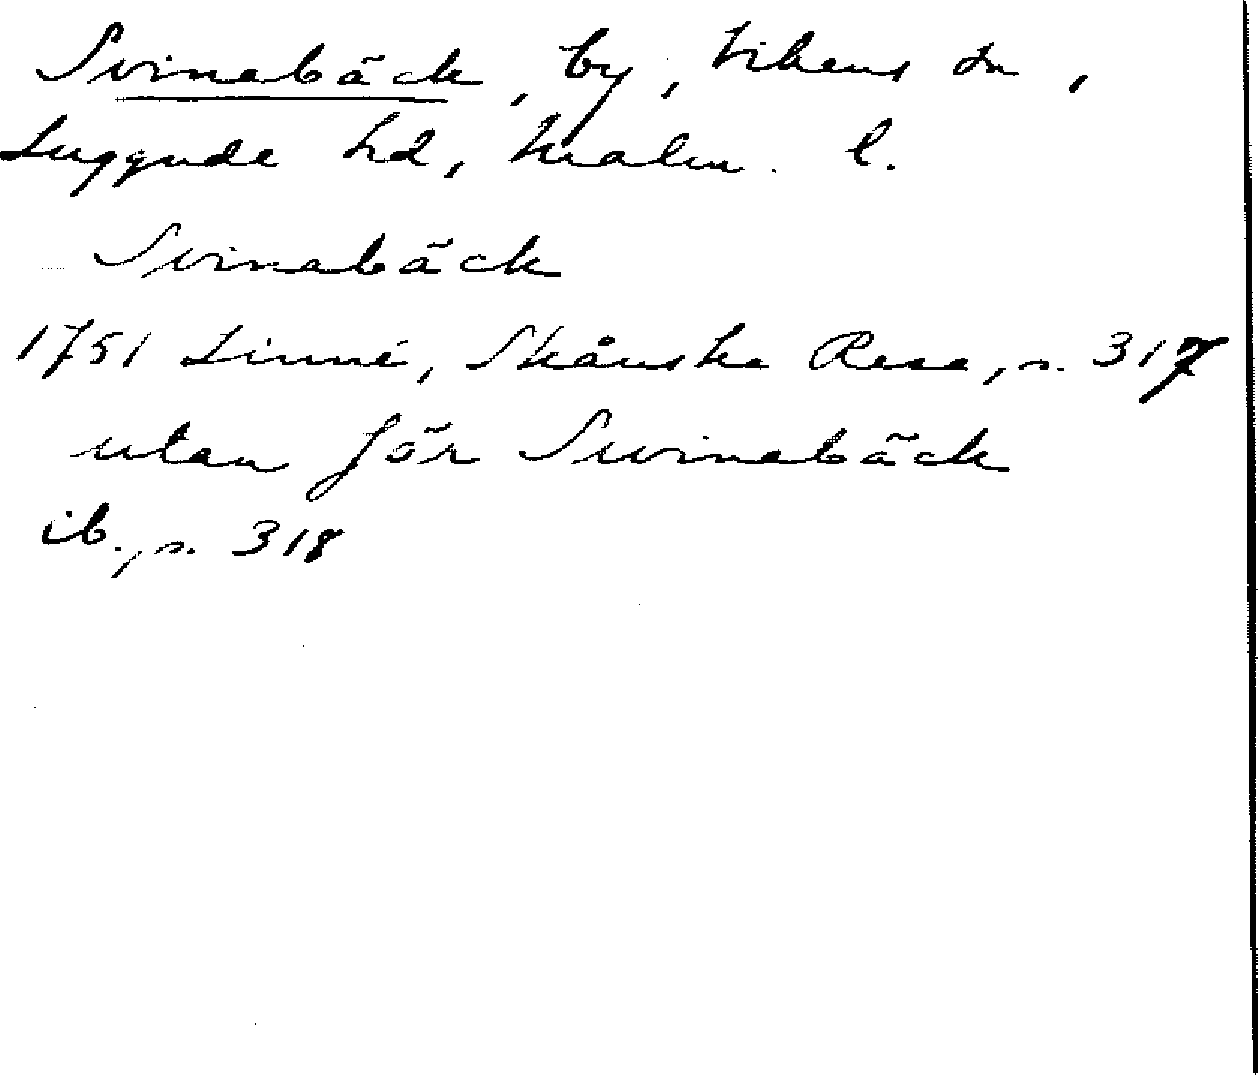 Svinabäck, by, Vikens sn,
Luggude hd, Malm. l.
Svinabäck
1751 Linné, Skånska Resa, s. 317
utan för Swinabäck
ib., s. 318